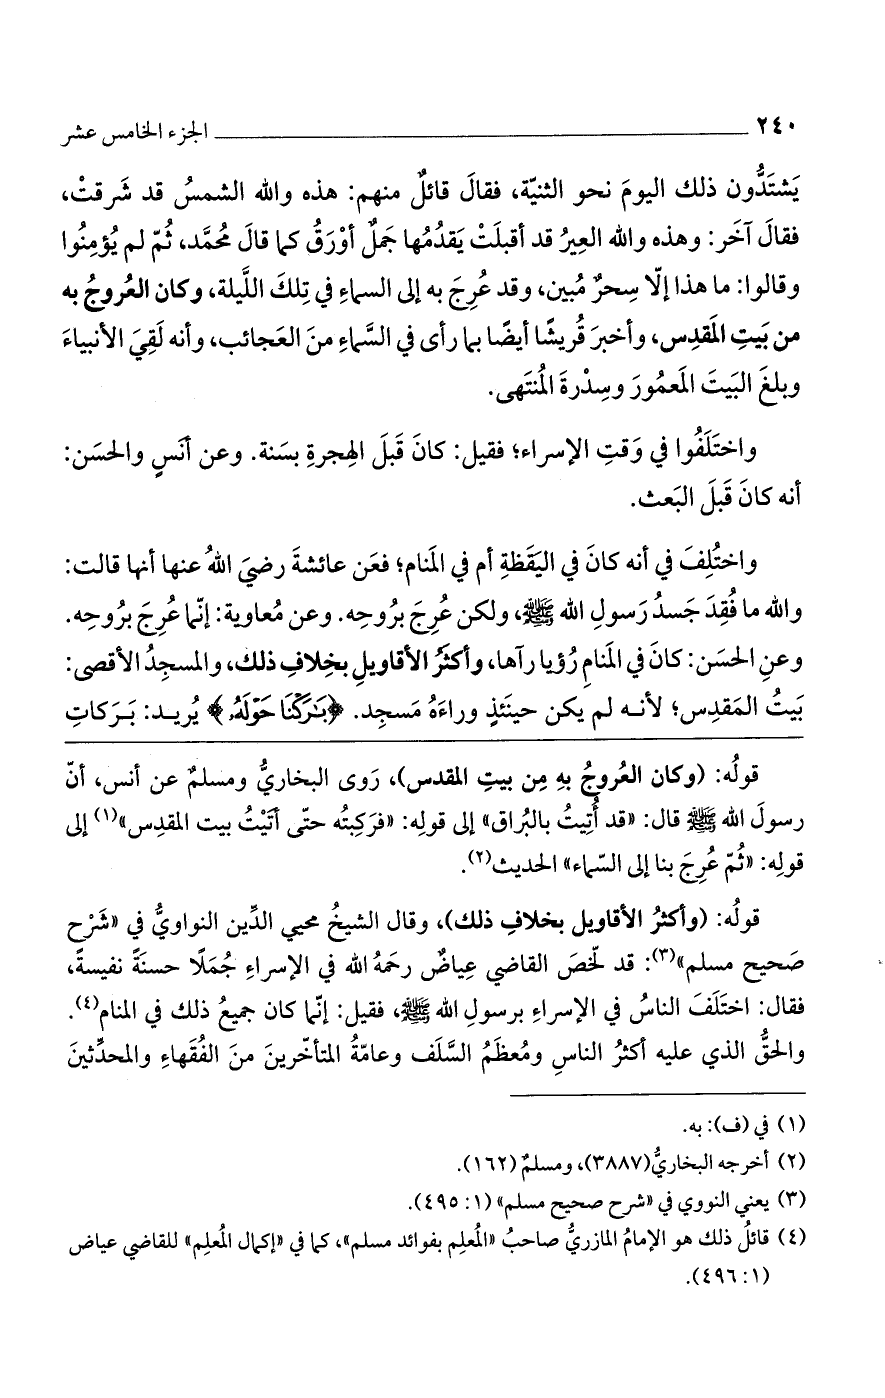 ٢٤٠ الجزء الخامس عشر
يَشتَدُّون ذلك اليومَ نحو الثنيّة، فقالَ قائلٌ منهم: هذه والله الشمسُ قد شَرقتْ،
فقالَ آخَر: وهذه والله العِيرُ قد أقبلَتْ يَقدُمُها جَملٌ أوْرَقُ كما قالَ مُحمَّد، ثُمّ لم يُؤمِنُوا
وقالوا: ما هذا إلّا سِحرٌ مُبين، وقد عُرِجَ به إلى السماءِ في تِلكَ اللَّيلة، وكان العُروجُ به
من بَيتِ المَقدِس، وأخبرَ قُريشًا أيضًا بما رأى في السَّماءِ منَ العَجائب، وأنه لَقِيَ الأنبياءَ
وبلغَ البَيتَ المَعمُورَ وسِدْرةَ المُنتَهى.
واختَلَفُوا في وَقتِ الإسراء؛ فقيل: كانَ قَبلَ الهِجرةِ بسَنة. وعن أنَسٍ والحسَن:
أنه كانَ قَبلَ البَعث.
واختُلِفَ في أنه كانَ في اليَقَظةِ أم في المَنام؛ فعَن عائشةَ رضيَ اللهُ عنها أنها قالت:
والله ما فُقِدَ جَسدُ رَسولِ الله ﷺ، ولكن عُرِجَ برُوحِه. وعن مُعاوية: إنّما عُرِجَ برُوحِه.
وعنِ الحسَن: كانَ في المَنامِ رُؤيا رآها، وأكثَرُ الأقاويلِ بخِلافِ ذلك، والمسجِدُ الأقصى:
بَيتُ المَقدِس؛ لأنه لم يكن حينَئذٍ وراءَهُ مَسجِد. ﴿بَٰرَكْنَا حَوْلَهُۥ﴾ يُريد: بَرَكاتِ
قولُه: (وكان العُروجُ بهِ مِن بيتِ المقدس)، رَوى البخاريُّ ومسلمٌ عن أنس، أنّ
رسولَ الله ﷺ قال: «قد أُتِيتُ بالبُراق» إلى قولِه: «فرَكِبتُه حتّى أتَيْتُ بيت المقدِس»(١) إلى
قولِه: «ثُمّ عُرِجَ بنا إلى السّماء» الحديث(٢).
قولُه: (وأكثرُ الأقاويل بخلافِ ذلك)، وقال الشيخُ محيي الدِّين النواويُّ في «شَرْح
صَحيح مسلم»(٣): قد لخّصَ القاضي عِياضٌ رحمَهُ الله في الإسراءِ جُمَلًا حسنَةً نفيسةً،
فقال: اختَلَفَ الناسُ في الإسراءِ برسولِ الله ﷺ، فقيل: إنّما كان جميعُ ذلك في المنام(٤).
والحقُّ الذي عليه أكثرُ الناسِ ومُعظَمُ السَّلَف وعامّةُ المتأخّرينَ منَ الفُقَهاءِ والمحدِّثينَ
(١) في (ف): به.
(٢) أخرجه البخاريُّ(٣٨٨٧)، ومسلمٌ (١٦٢).
(٣) يعني النووي في «شرح صحيح مسلم» (١: ٤٩٥).
(٤) قائلُ ذلك هو الإمامُ المازريُّ صاحبُ «المُعلِم بفوائد مسلم»، كما في «إكمال المُعلِم» للقاضي عياض
(١: ٤٩٦).